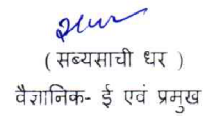 ( सब्यसाची धर )
वैज्ञानिक- ई एवं प्रमुख